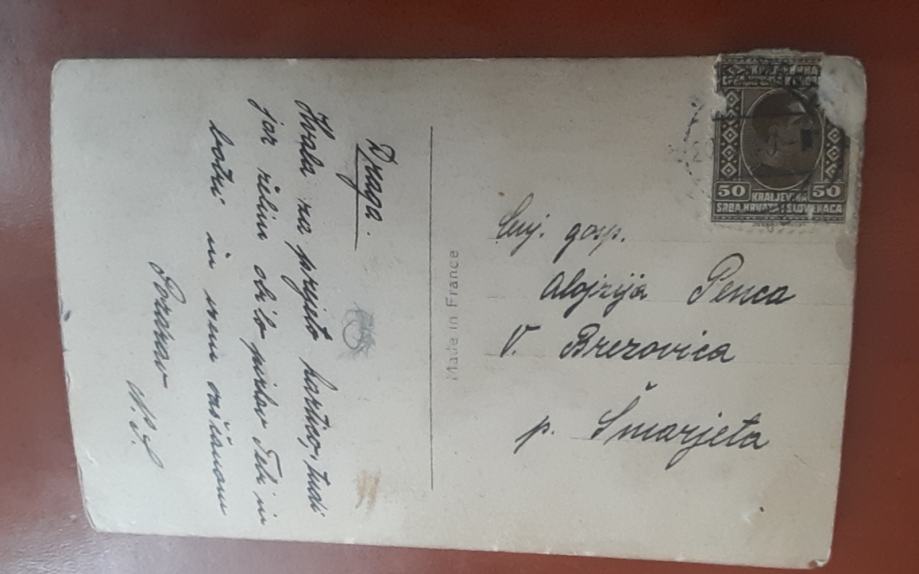 Draga.
Hvala za prejeto kartico, tudi
jaz želim obilo pirhov Tebi in
botri in vsem vaščanom
Pozdrav
Made in France
50 50
KRALJEVINA
SRBA, HRVATA I SLOVENACA
Cenj. gosp.
Alojzija Penca
V. Brezovica
p. Šmarjeta